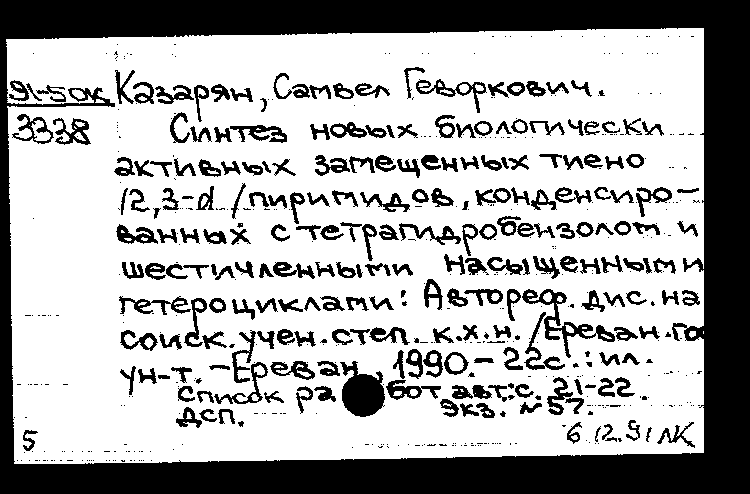 91-50к Казарян, Самвел Геворкович.
3338 Синтез новых биологически
активных замещенных тиено
/2,3-d/пиримидов, конденсиро-
ванных с тетрагидробензолом и
шестичленными насыщенными
гетероциклами: Автореф. дис. на
соиск. учен. степ. к.х.н. /Ереван. гос
ун-т. - Ереван, 1990. - 22с.: ил.
Список работ авт.: с. 21-22.
ДСП. Экз. № 57.
5 6 12.91 ЛК